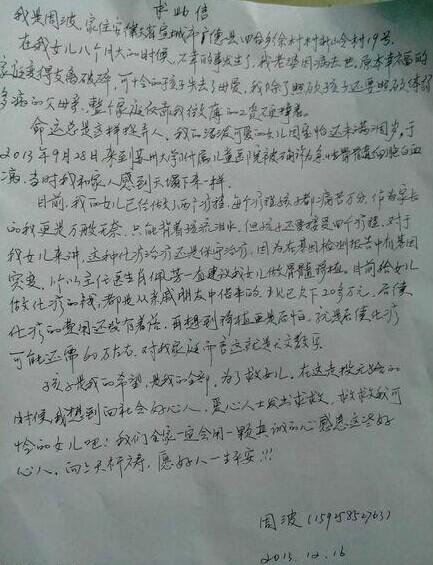 求助信
我是周波,家住安徽省宣城市广德县四合乡余村村耿山冲村19号。
在我女儿八个月大的时候,不幸的事发生了,我老婆因病去世,原本幸福的
家庭变得支离破碎,可怜的孩子失去了母爱,我除了照顾孩子还要照顾体弱
多病的父母亲,整个家庭仅靠我微薄的工资硬撑着。
命运总是这样捉弄人,我的活泼可爱的女儿因害怕还未满周岁,于
2013年9月28日来到苏州大学附属儿童医院被确诊为急性骨髓细胞白血
病,当时我和家人感到天塌下来一样。
目前,我的女儿已经做了六个疗程,每个疗程孩子都心痛苦万分,作为家长
的我更是万般无奈,只能背着孩流泪水,但孩子还要接受四个疗程,对于
我女儿来讲,这种化疗治疗还是保守治疗,因为在基因检测报告中有基因
突变,所以主任医生肖佩芳一直建议我女儿做骨髓移植。目前给女儿
做化疗的钱,都是从亲戚朋友中借来的,现已欠下20多万元,后续
化疗的费用还没有着落,再想到移植更是后怕,就是后续化疗
可能还需60万左右,对我家庭而言这就是天文数字。
孩子是我的希望,是我的全部,为了救女儿,在这走投无路的
时候,我想到向社会好心人,爱心人士发出求救,救救我可
怜的女儿吧!我们全家一定会用一颗真诚的心感恩这些好
心人,向上天祈祷,愿好人一生平安!!!
周波(15925852763)
2013.12.16